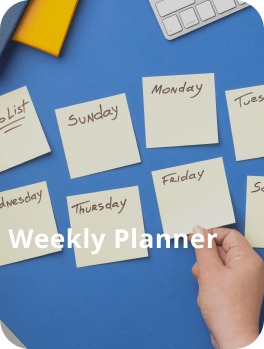 o List
Sunday
Monday
Tues
dnesday
Thursday
Friday
Sa
Weekly Planner